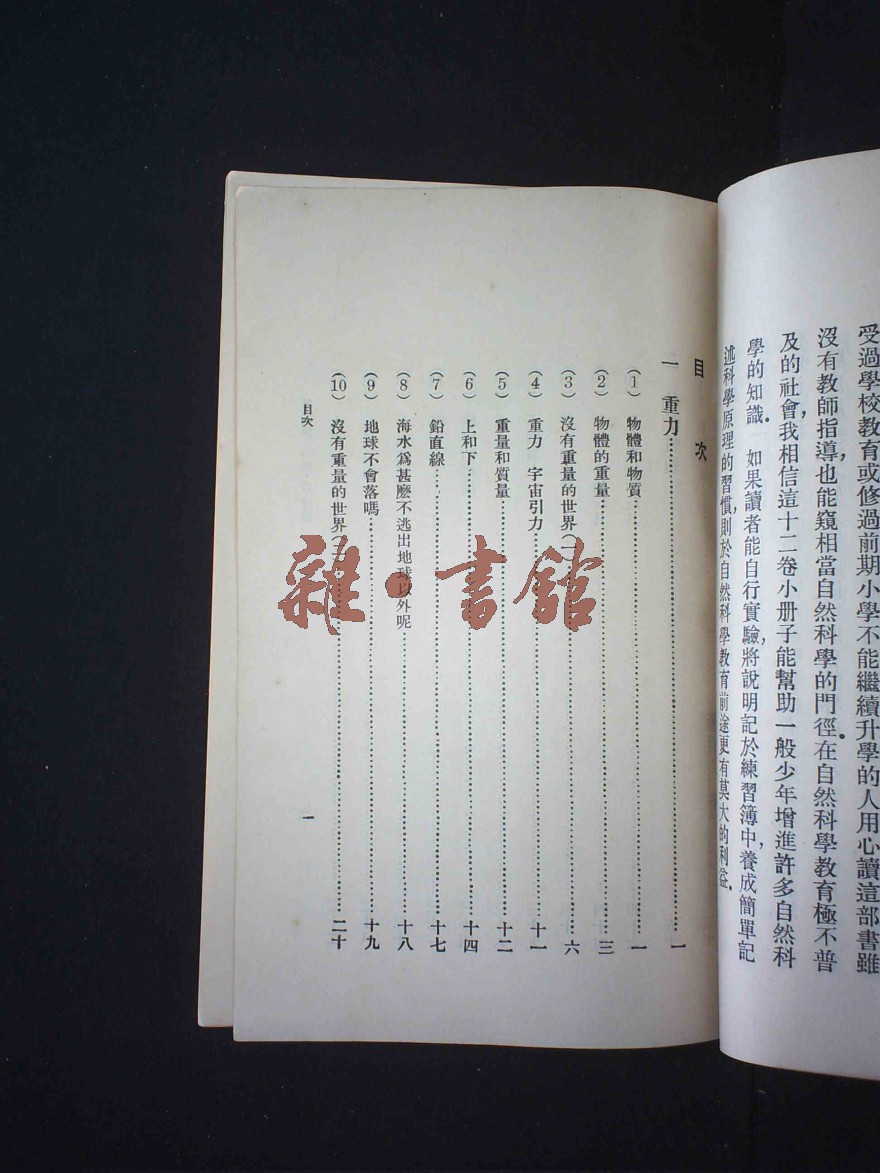 受過學校教育或修過前期小學不能繼續升學的人用心讀這部書雖
沒有教師指導,也能窺相當自然科學的門徑.在自然科學教育極不普
及的社會,我相信這十二卷小册子能幫助一般少年增進許多自然科
學的知識. 如果讀者能自行實驗,將說明記於練習簿中,養成簡單記
述科學原理的習慣,則於自然科學教育前途更有莫大的利益.
目 次
一 重力……一
(1) 物體和物質……一
(2) 物體的重量……三
(3) 沒有重量的世界(一)……六
(4) 重力 宇宙引力……十一
(5) 重量和質量……十二
(6) 上和下……十四
(7) 鉛直線……十七
(8) 海水爲甚麽不逃出地球以外呢……十八
(9) 地球不會落嗎……十九
(10) 沒有重量的世界(二)……二十
目次
一
雜·書館